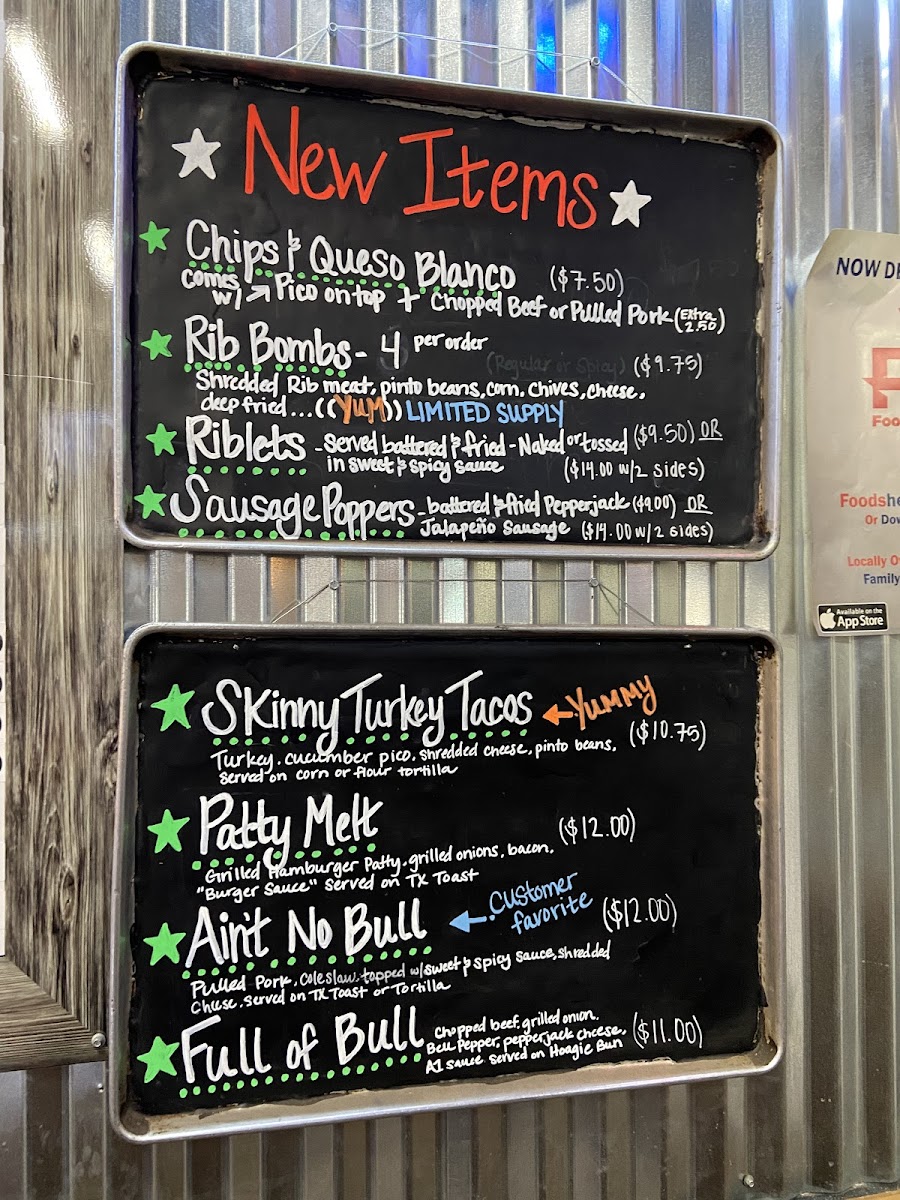 New Items
Chips & Queso Blanco ($7.50)
comes w/ → Pico on top + Chopped Beef or Pulled Pork (Extra 2.50)
Rib Bombs - 4 per order
(Regular or Spicy) ($9.75)
Shredded Rib meat, pinto beans, corn, chives, cheese,
deep fried...((YUM)) LIMITED SUPPLY
Riblets - served battered & fried - Naked or tossed ($9.50) OR
in sweet & spicy sauce ($14.00 w/2 sides)
Sausage Poppers - battered & fried Pepperjack ($9.00) OR
Jalapeño Sausage ($14.00 w/2 sides)
Skinny Turkey Tacos ← Yummy
($10.75)
Turkey, cucumber pico, shredded cheese, pinto beans,
served on corn or flour tortilla
Patty Melt ($12.00)
Grilled Hamburger Patty, grilled onions, bacon,
"Burger Sauce" served on TX Toast
Ain't No Bull ← Customer favorite ($12.00)
Pulled Pork, Coleslaw, topped w/ sweet & spicy sauce, shredded
Cheese, served on TX Toast or Tortilla
Full of Bull
Chopped beef, grilled onion,
Bell Pepper, pepperjack cheese, ($11.00)
A1 sauce served on Hoagie Bun
NOW DE
Foo
Foodshe
Or Dow
Locally O
Family
Available on the
App Store